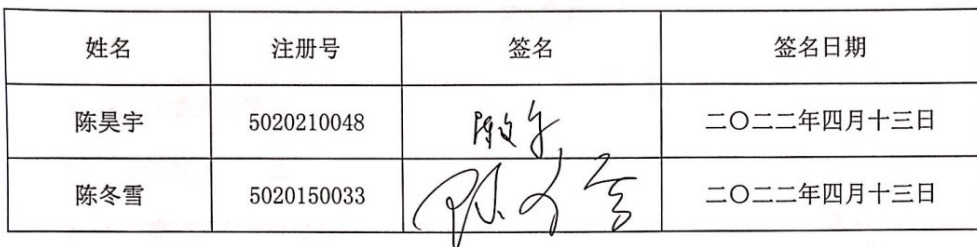 姓名 注册号 签名 签名日期
陈昊宇 5020210048 二〇二二年四月十三日
陈冬雪 5020150033 二〇二二年四月十三日